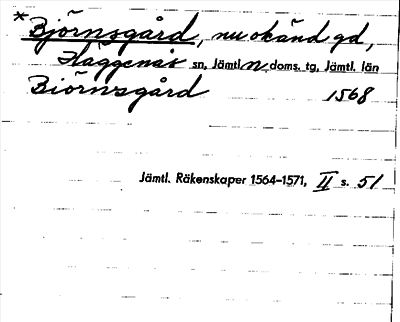 * Björnsgård, nu okänd gd,
Häggenås sn, Jämtl. n. doms. tg, Jämtl. län
Biörnsgård 1568
Jämtl. Räkenskaper 1564–1571, II s. 51